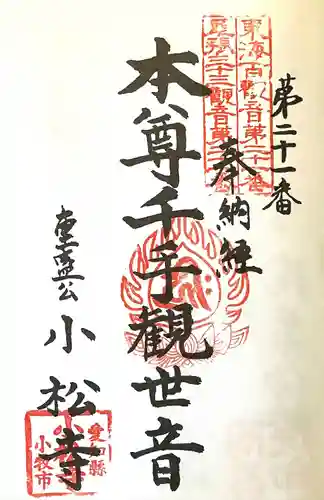 第二十一番
東海百観音第二十一番
尾張三十三観音第二十一番
奉納経
本尊千手観世音
重盛公
小松寺
愛知縣
小牧市
小松寺